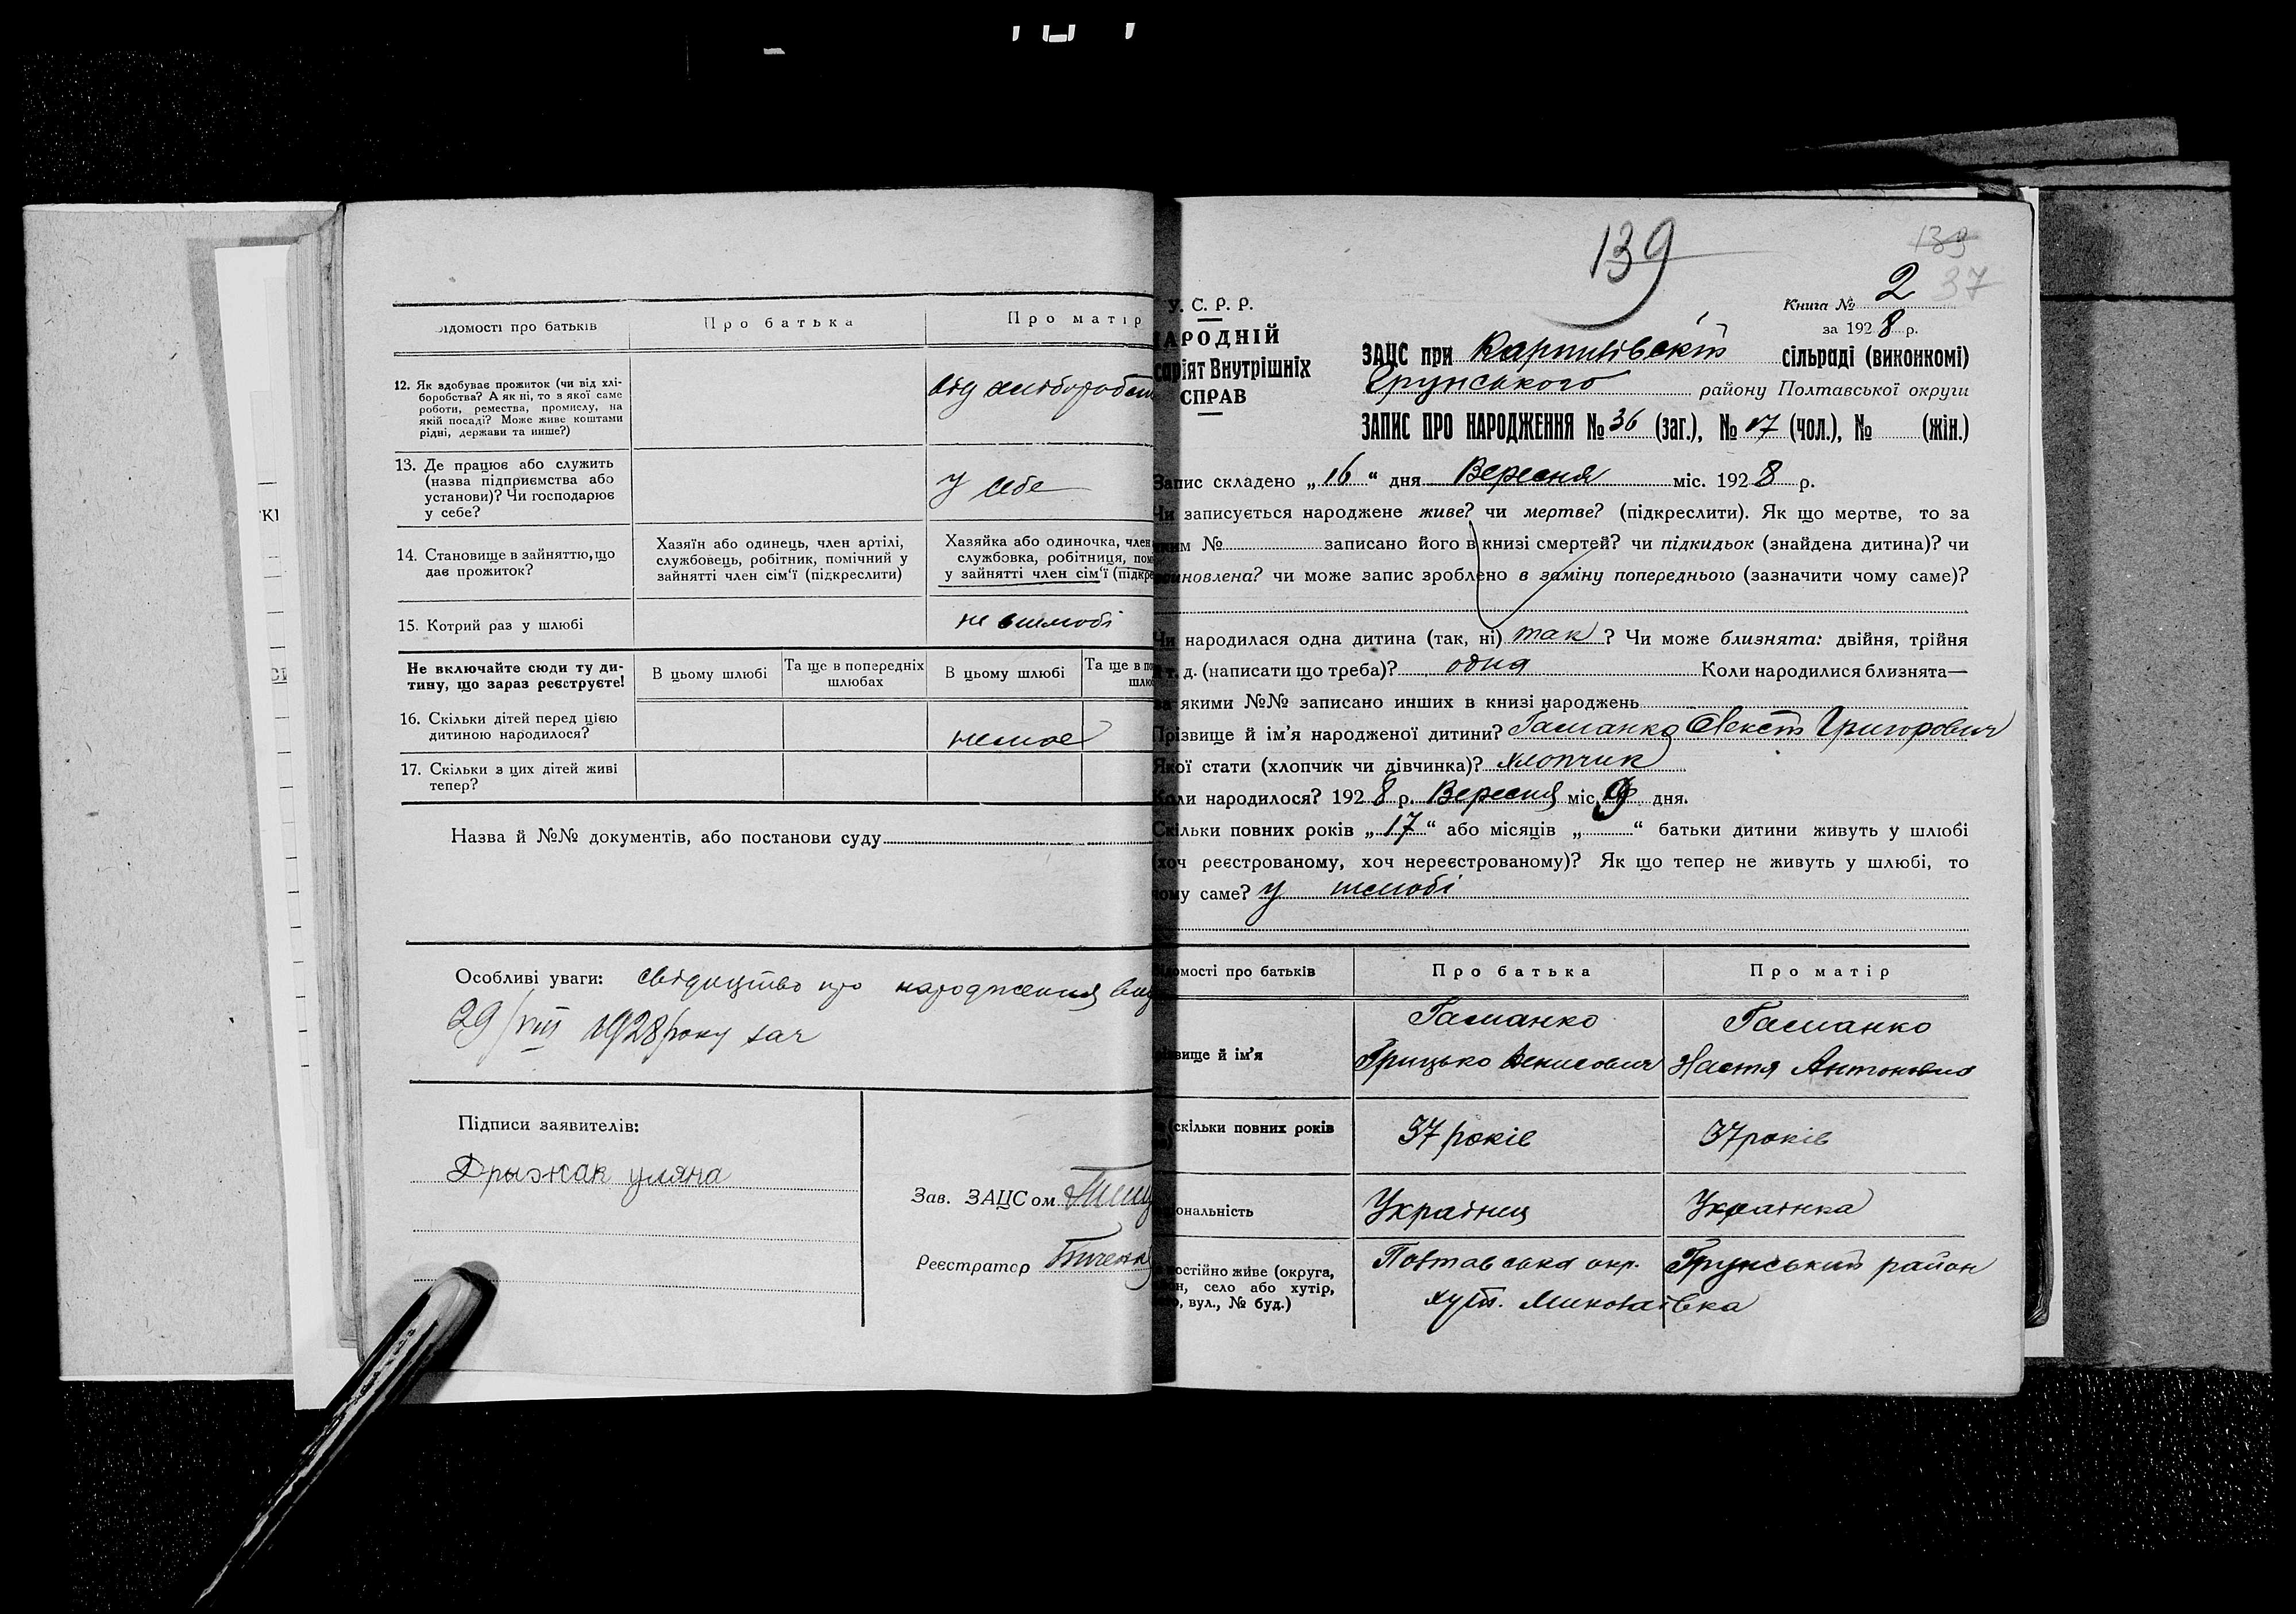 Відомості про батьків
Про батька
Про матір
12. Як здобуває прожиток (чи від хлі-
боробства? А як ні, то з якої саме
роботи, ремества, промислу, на
якій посаді? Може живе коштами
рідні, держави та инше?)
від хлібороб
13. Де працює або служить
(назва підприємства або
установи)? Чи господарює
у себе?
у себе
14. Становище в зайняттю, що
дає прожиток?
Хазяїн або одинець, член артілі,
службовець, робітник, помічний у
зайнятті член сім'ї (підкреслити)
Хазяйка або одиночка, член
службовка, робітниця, пом
у зайнятті член сім'ї (підкре
15. Котрий раз у шлюбі
не в шлюбі
Не включайте сюди ту ди-
тину, що зараз реєструєте!
В цьому шлюбі
Та ще в попередніх
шлюбах
В цьому шлюбі
Та ще в по
шлю
16. Скільки дітей перед цією
дитиною народилося?
немає
17. Скільки з цих дітей живі
тепер?
Назва й №№ документів, або постанови суду
Особливі уваги: свідоцтво про народження
29/VIII 1928 року
Підписи заявителів:
Дрыжак уляна
Зав. ЗАЦС ом
Реєстратор
139
139
37
У. С. Р. Р.
НАРОДНІЙ
саріят Внутрішніх
СПРАВ
Книга № 2
за 1928 р.
ЗАЦС при Карпилівскій сільраді (виконкомі)
Грунського району Полтавської округи
ЗАПИС ПРО НАРОДЖЕННЯ № 36 (заг.), № 17 (чол.), № (жін.)
Запис складено „16" дня Вересня міс. 1928 р.
Чи записується народжене живе? чи мертве? (підкреслити). Як що мертве, то за
яким № записано його в книзі смертей? чи підкидьок (знайдена дитина)? чи
всиновлена? чи може запис зроблено в заміну попереднього (зазначити чому саме)?
Чи народилася одна дитина (так, ні) так ? Чи може близнята: двійня, трійня
й т. д. (написати що треба)? одна Коли народилися близнята—
за якими №№ записано инших в книзі народжень
Прізвище й ім'я народженої дитини? Гасманко Олексій Григорович
Якої стати (хлопчик чи дівчинка)? хлопчик
Коли народилося? 1928 р. Вересня міс. 9 дня.
Скільки повних років „17" або місяців „ " батьки дитини живуть у шлюбі
(хоч реєстрованому, хоч нереєстрованому)? Як що тепер не живуть у шлюбі, то
чому саме? у шлюбі
Відомості про батьків
Про батька
Про матір
звище й ім'я
Гасманко
Грицько Денисович
Гасманко
Настя Антоновна
(скільки повних років
37 років
37 років
іональність
Українец
Українка
постійно живе (округа,
он, село або хутір,
, вул., № буд.)
Полтавська окр. Грунський район
хут. Миколаївка